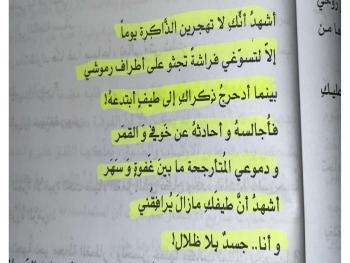 أشهدُ أنَّكِ لا تهجرين الذَّاكرة يوماً
إلاّ لتسوّغي فراشةً تجثو على أطراف رموشي
بينما أدحرجُ ذكراكِ إلى طيفٍ أبتدعهُ!
فأجالسهُ و أحادثهُ عن خوفي وَ القمَر
و دموعي المُتأرجحة ما بين غَفوةٍ وَ سَهَر
أشهدُ أنَّ طيفكِ مازالَ يُرافِقُني
و أنا.. جسدٌ بلا ظلال!
روحي
ها من
عليكِ